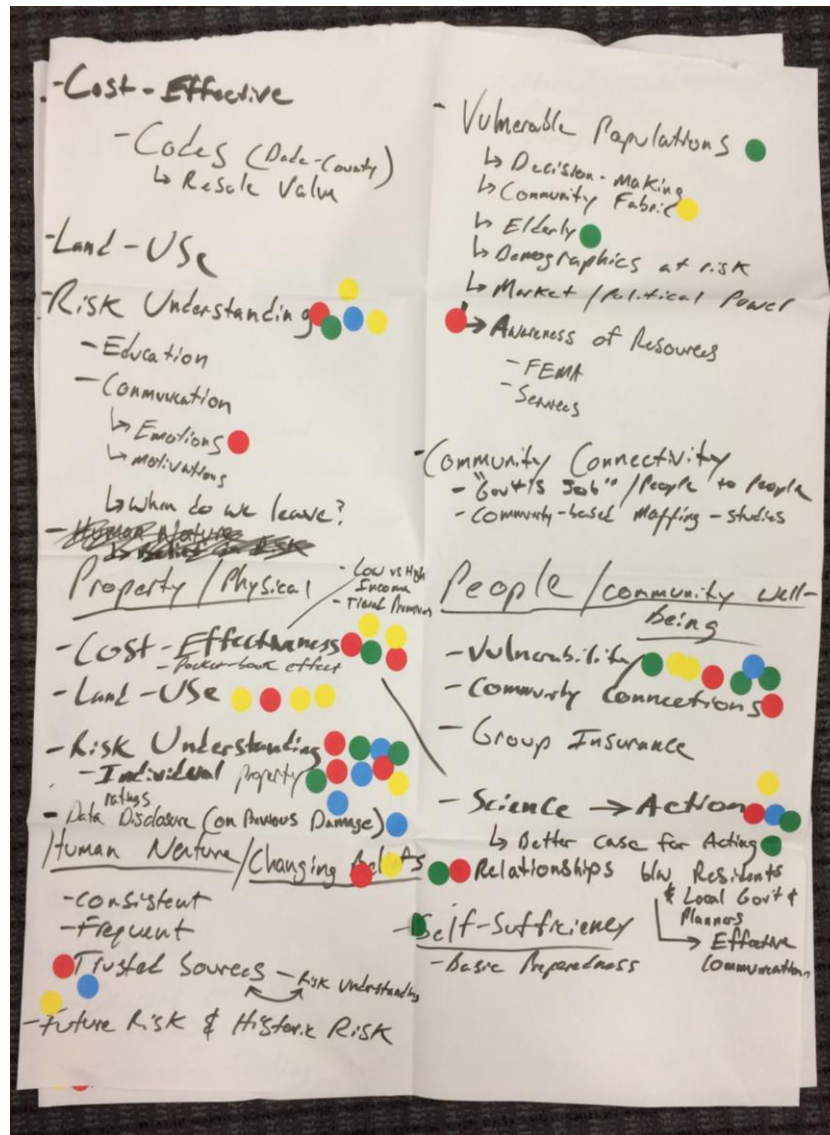 - Cost-Effective
- Codes (Dade-County)
↳ Resale Value
- Land-Use
- Risk Understanding
- Education
- Communication
↳ Emotions
↳ motivations
↳ When do we leave?
- Human Nature
Property/Physical
- Low vs High Income
- Tiered Premium
- Cost-Effectiveness
- Pocket-book effect
- Land-Use
- Risk Understanding
- Individual property ratings
- Data Disclosure (on Previous Damage)
Human Nature/Changing Beliefs
- consistent
- Frequent
- Trusted Sources - Risk Understanding
- Future Risk & Historic Risk
- Vulnerable Populations
↳ Decision-Making
↳ Community Fabric
↳ Elderly
↳ Demographics at risk
↳ Market/Political Power
→ Awareness of Resources
- FEMA
- Services
- Community Connectivity
- "Gov't's Job"/People to People
- Community-based Mapping - studies
People/community well-
being
- Vulnerability
- Community Connections
- Group Insurance
- Science → Action
↳ Better case for Acting
Relationships b/w Residents
& Local Gov't &
Planners
→ Effective
Communication
- Self-Sufficiency
- Basic Preparedness